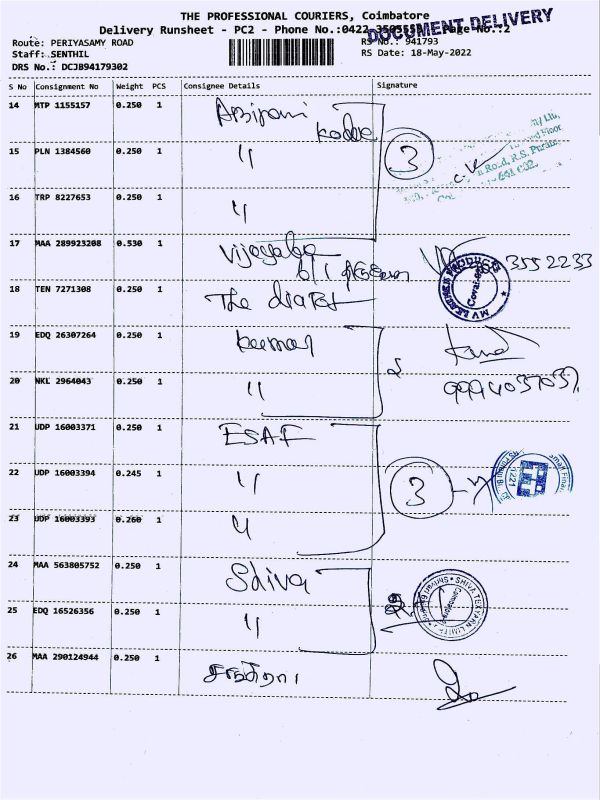 THE PROFESSIONAL COURIERS, Coimbatore
DOCUMENT DELIVERY
Delivery Runsheet - PC2 - Phone No.:0422 Page No.:2
Route: PERIYASAMY ROAD
RS No.: 941793
Staff: SENTHIL
RS Date: 18-May-2022
DRS No.: DCJB94179302
S No Consignment No Weight PCS Consignee Details Signature
14 MTP 1155157 0.250 1 Abirami
15 PLN 1384560 0.250 1 "
3
Road, R.S. Puram
16 TRP 8227653 0.250 1 "
17 MAA 289923208 0.530 1 3552233
18 TEN 7271308 0.250 1 The
MV PRODUCTS
19 EDQ 26307264 0.250 1 Kumar
20 NKL 2964043 0.250 1 "
21 UDP 16003371 0.250 1 ESAF
22 UDP 16003394 0.245 1 "
3
1221
23 UDP 16003393 0.260 1 "
24 MAA 563805752 0.250 1 Shiva
SHIVA TEXYARN LIMITED
Coimbatore
25 EDQ 16526356 0.250 1 "
26 MAA 290124944 0.250 1